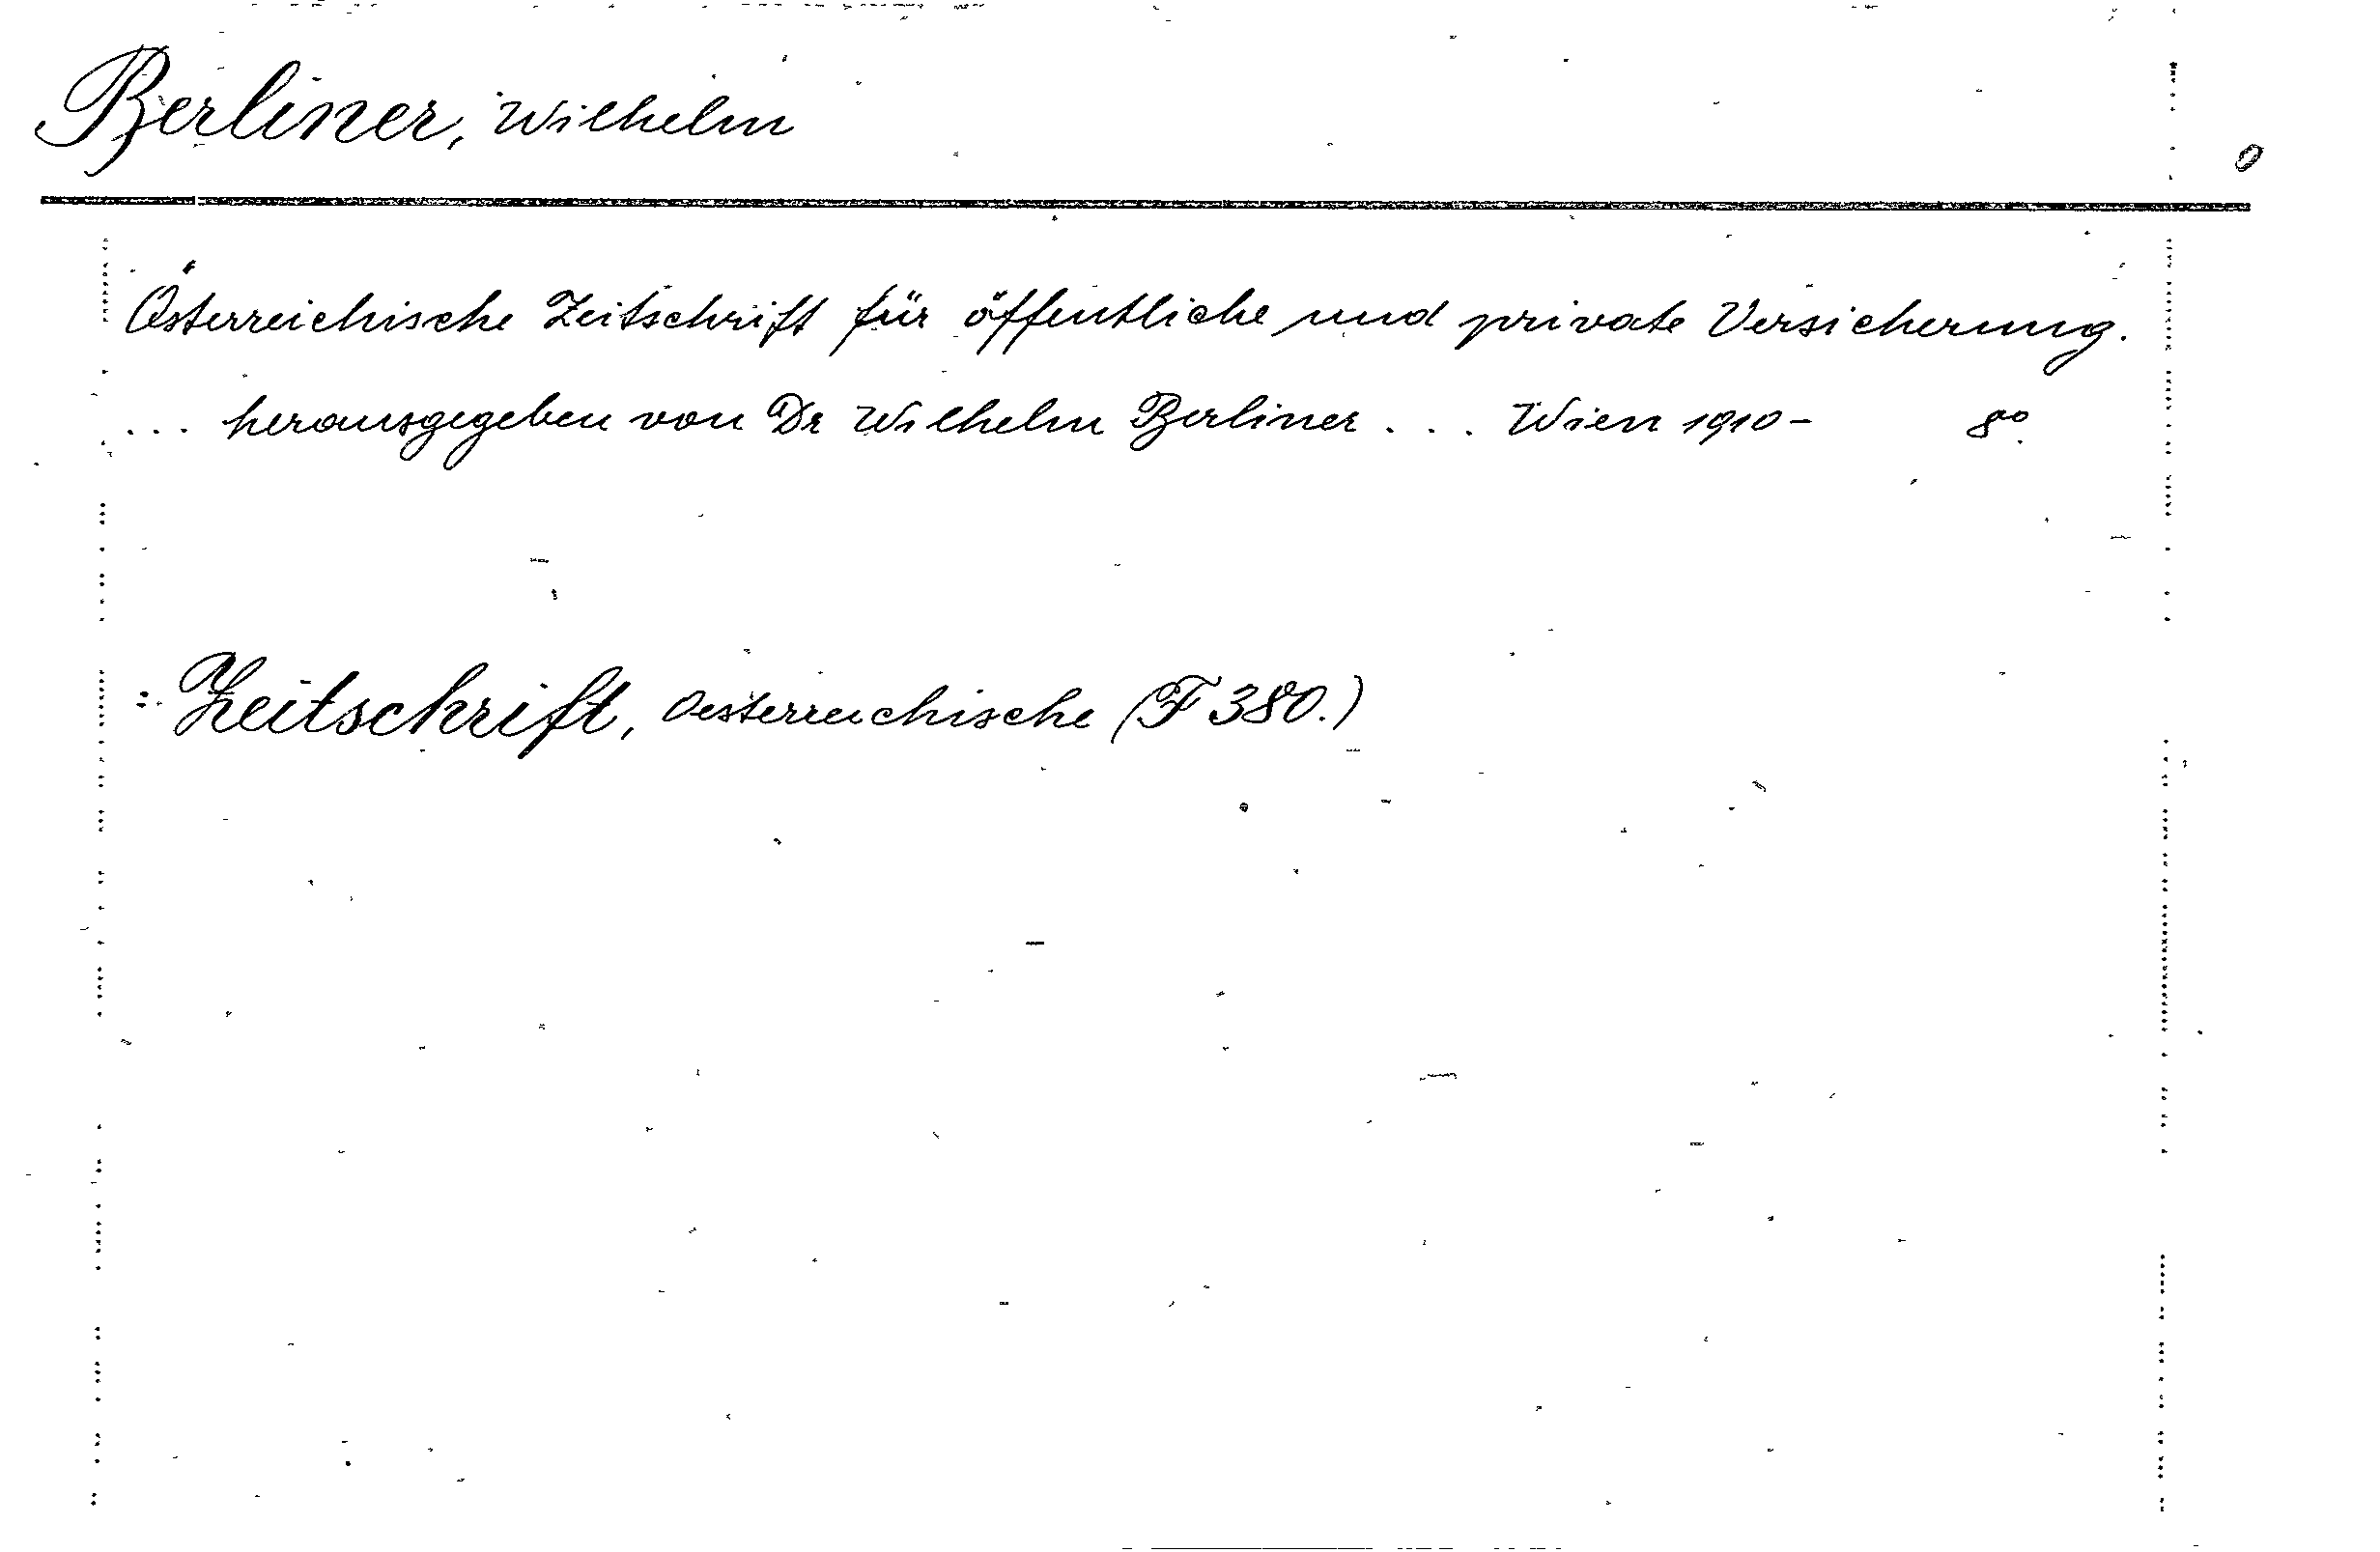 Berliner, Wilhelm
0
Österreichische Zeitschrift für öffentliche und private Versicherung.
... herausgegeben von Dr Wilhelm Berliner ... Wien 1910- 8º.
: Zeitschrift, Oesterreichische (F 380.)